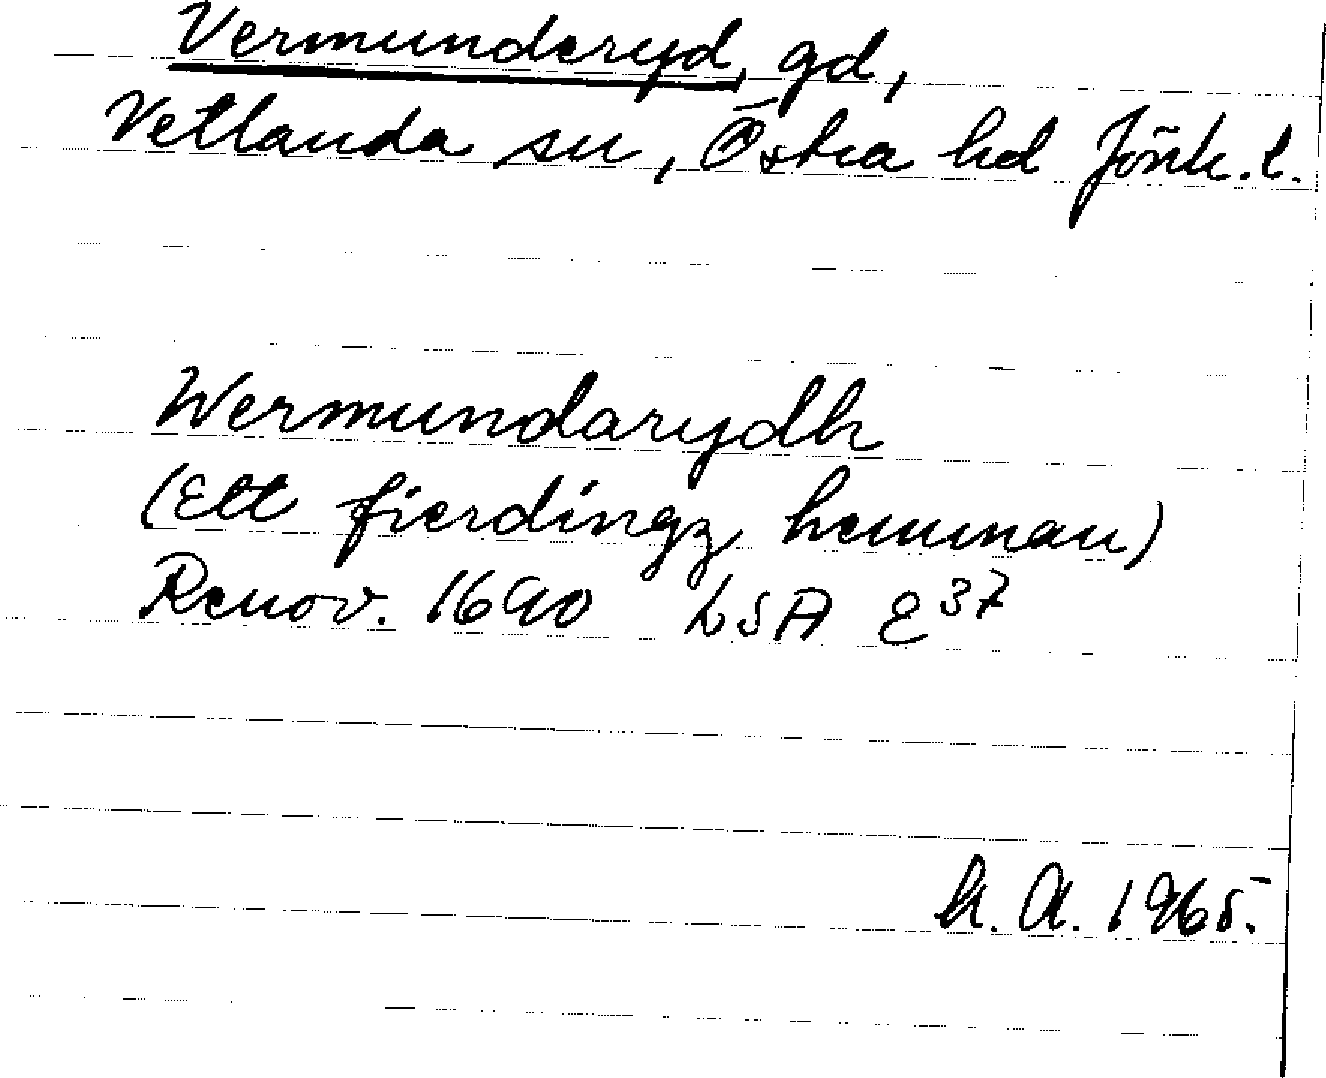 Vermunderyd, gd,
Vetlanda sn, Östra hd Jönk. l.
Wermundarydh
(Ett fierdingz hemman)
Renov. 1690 LSA E 37
K. A. 1965.